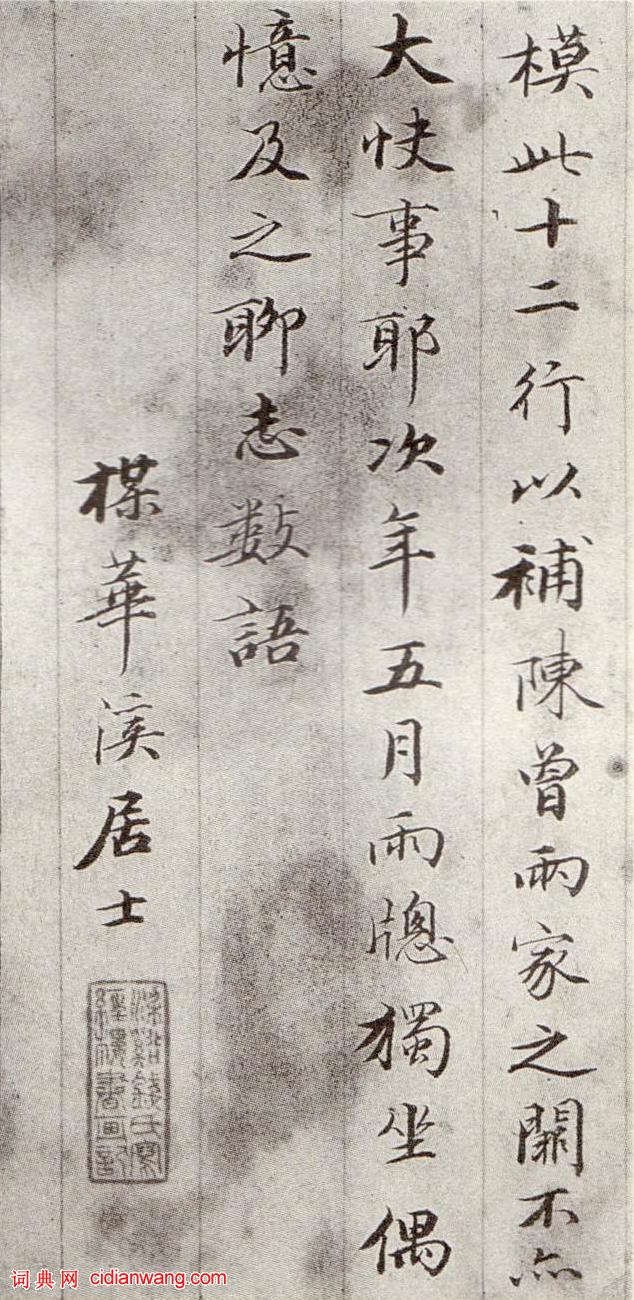 模此十二行以補陳曾兩家之闕不亦
大快事耶次年五月雨牕獨坐偶
憶及之聊志數語
楳華溪居士
词典网 cidianwang.com